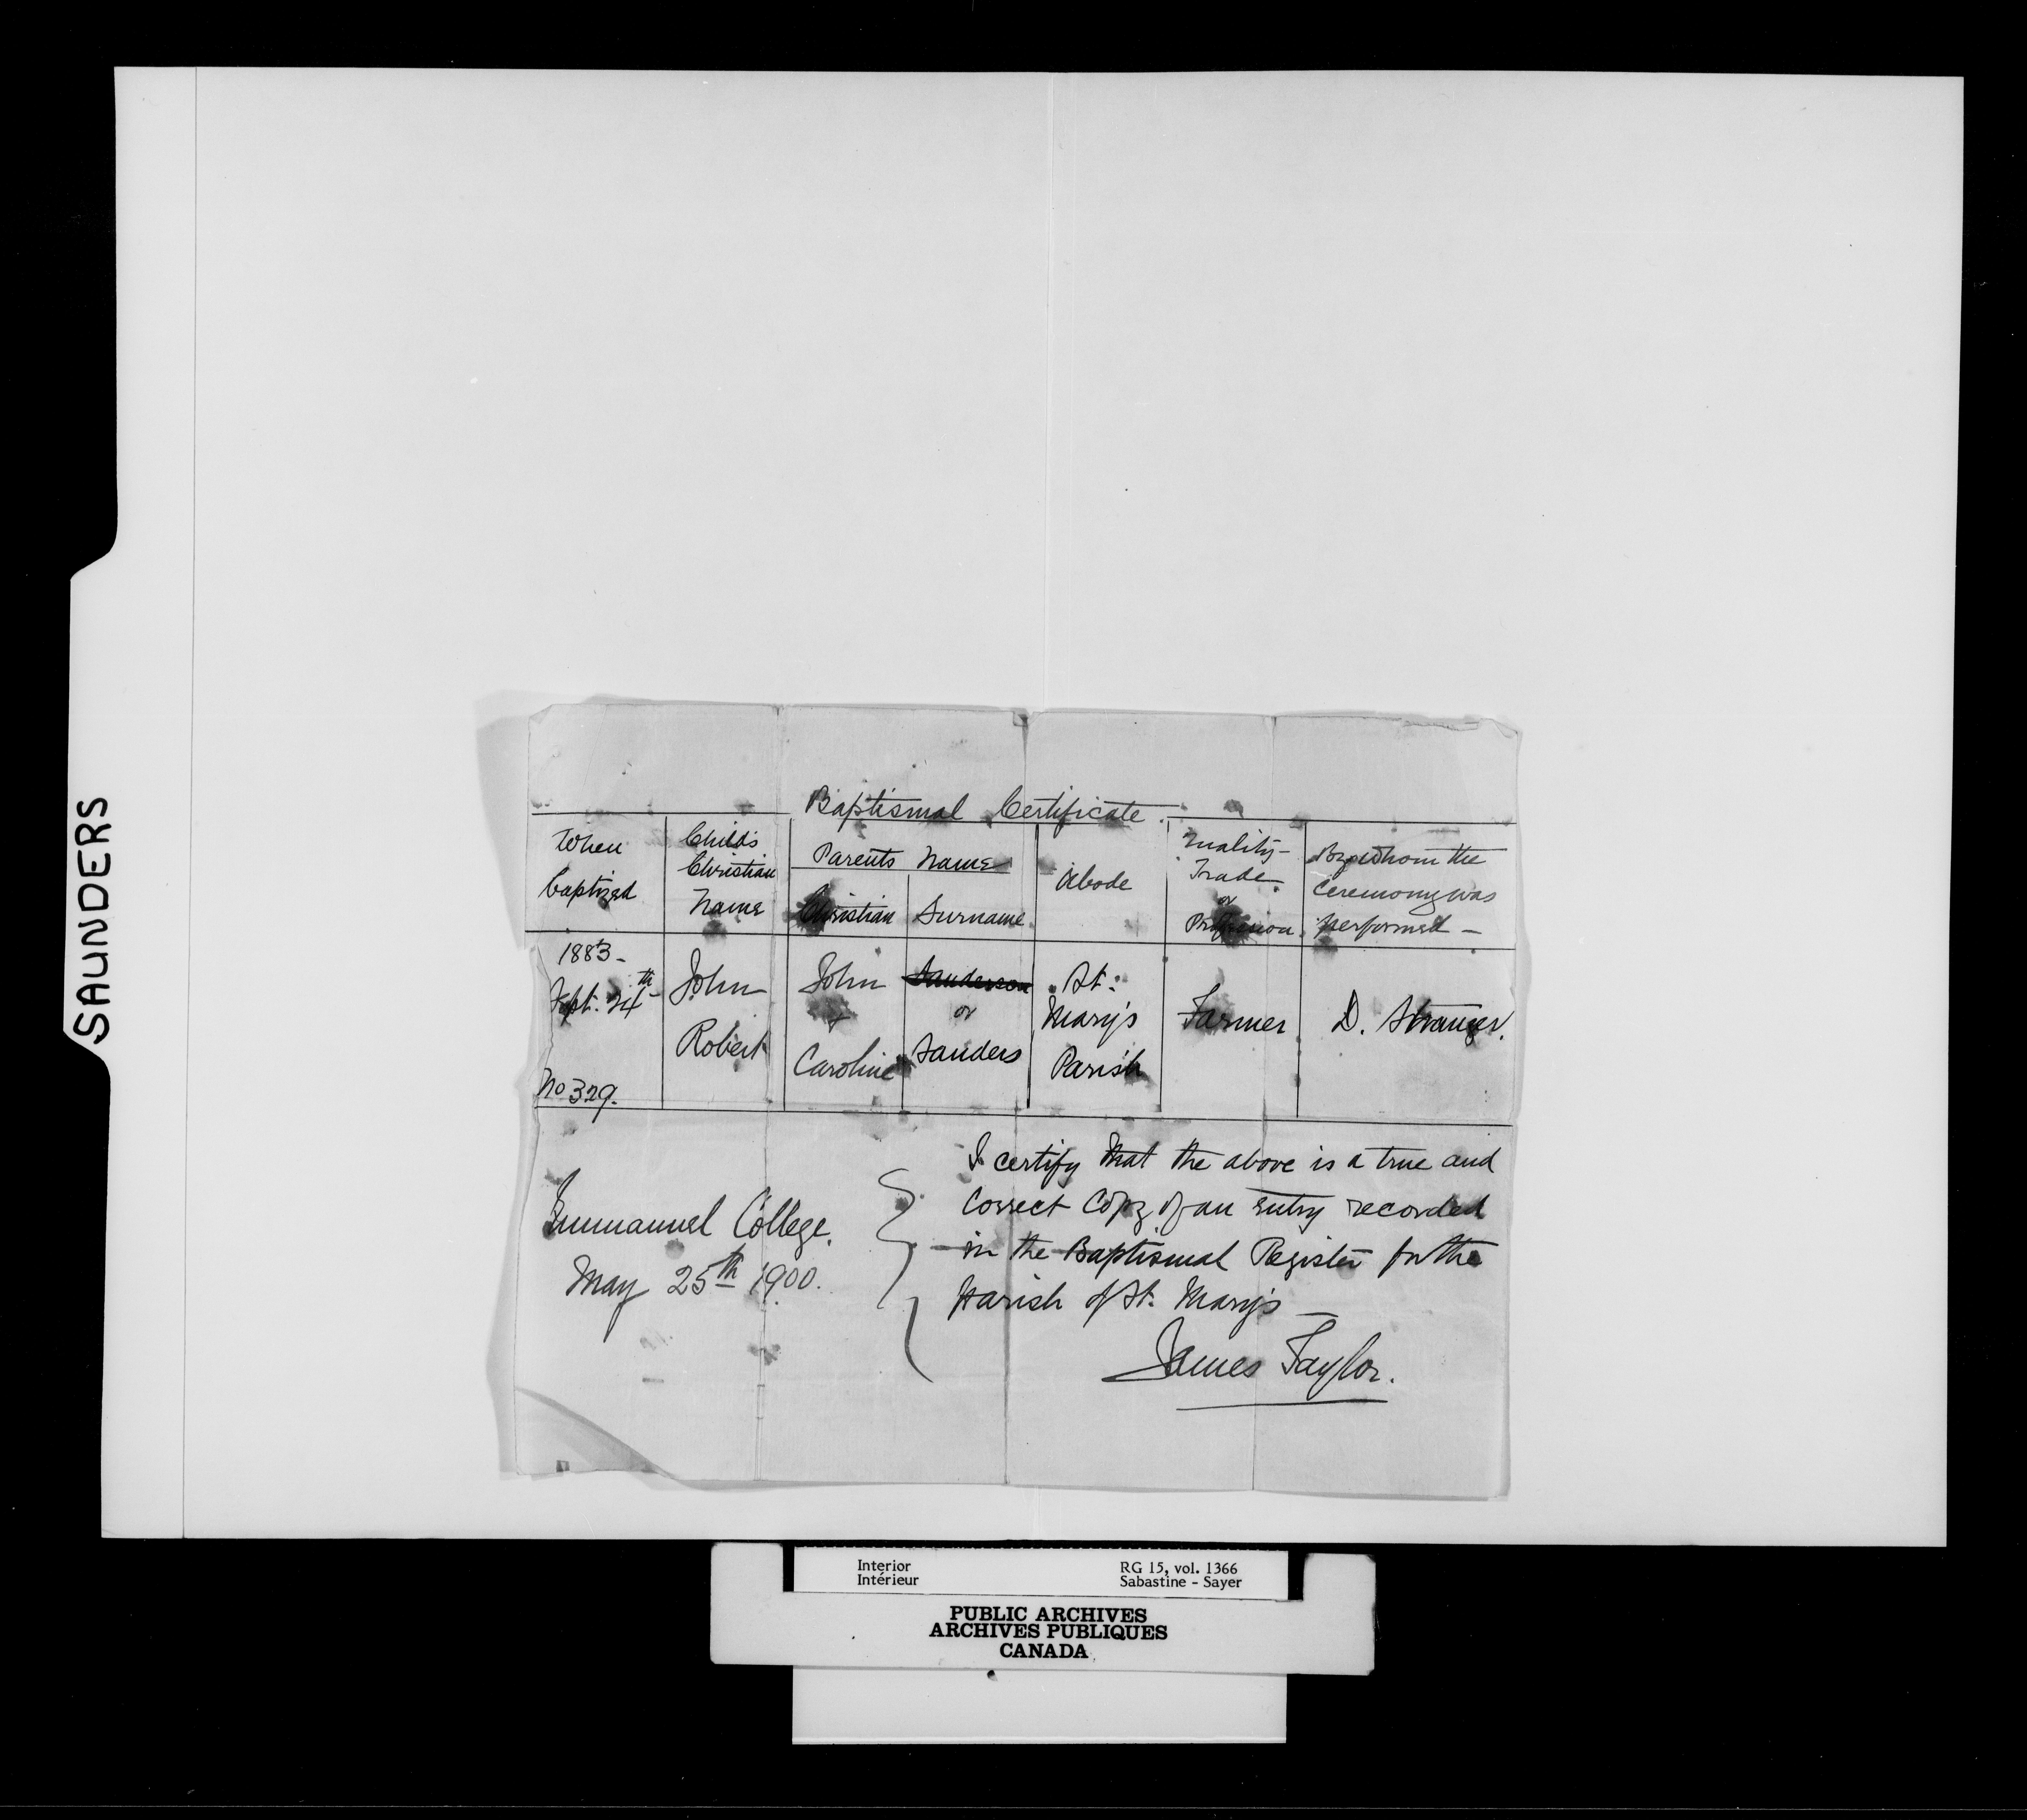 SAUNDERS
Baptismal Certificate.
When
baptized
Child's
Christian
Name
Parents Name
Christian
Surname
Abode
Quality
Trade
or
Profession
By whom the
ceremony was
performed —
1883 -
Sept. 24th
No 329.
John
Robert
John
+
Caroline
Sanderson
or
Sanders
St:
Mary's
Parish
Farmer
D. Stranger.
Emmanuel College.
May 25th 1900.
I certify that the above is a true and
correct copy of an entry recorded
in the Baptismal Register for the
parish of St. Mary's —
James Taylor.
Interior
Intérieur
RG 15, vol. 1366
Sabastine - Sayer
PUBLIC ARCHIVES
ARCHIVES PUBLIQUES
CANADA